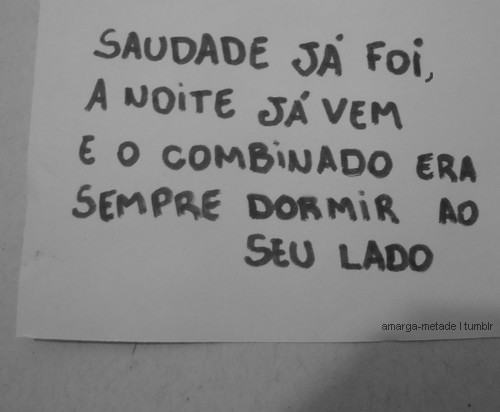 SAUDADE JÁ FOI,
A NOITE JÁ VEM
E O COMBINADO ERA
SEMPRE DORMIR AO
SEU LADO
amarga-metade | tumblr